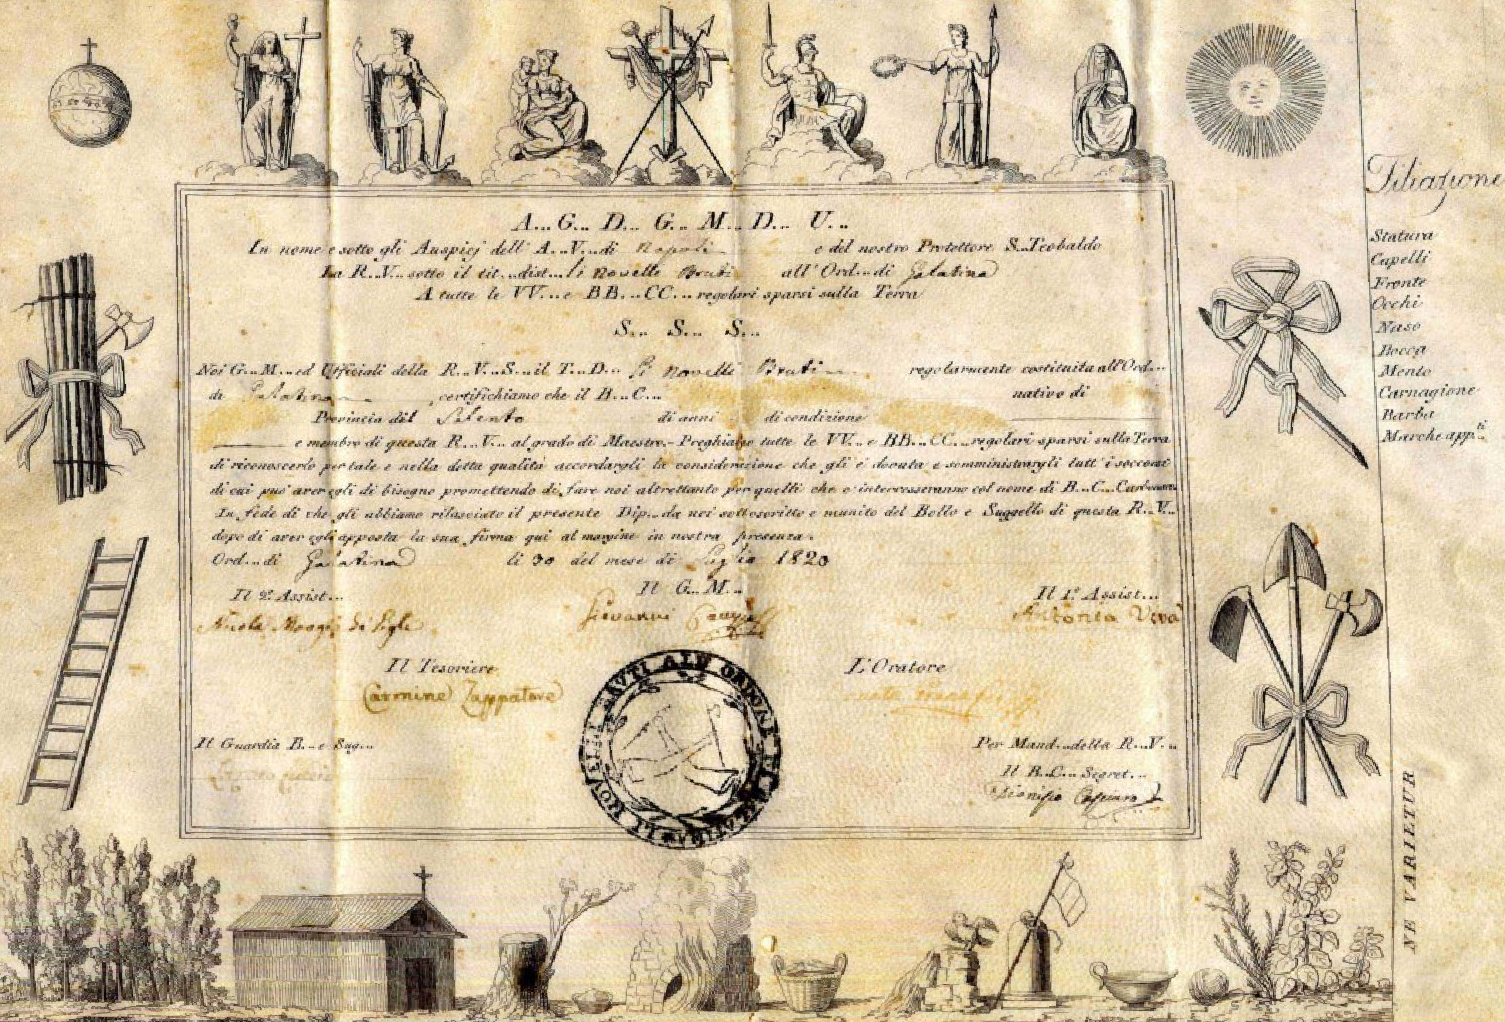 A... G... D... G... M... D... U...
In nome e sotto gli Auspicj dell' A...V...di Napoli e del nostro Protettore S...Teobaldo
La R...V... sotto il tit...dist...li Novelli Bruti all' Ord...di Galatina
A tutte le VV... e BB...CC... regolari sparsi sulla Terra
S... S... S...
Noi G...M...ed Uffiziali della R...V...S...il T...D... Li Novelli Bruti regolarmente costituita all' Ord...
di Galatina certifichiamo che il B...C... nativo di
Provincia del Salento di anni di condizione
e membro di questa R...V... al grado di Maestro.-Preghiamo tutte le VV... e BB...CC...regolari sparsi sulla Terra
di riconoscerlo per tale e nella detta qualità accordargli la considerazione che gli è dovuta e somministrargli tutt' i soccorsi
di cui puo' aver egli di bisogno promettendo di fare noi altrettanto per quelli che c'intercesseranno col nome di B...C...Carbonaro
In fede di che gli abbiamo rilasciato il presente Dip...da noi sottoscritto e munito del Bollo e Suggello di questa R...V...
dopo di aver egli apposta la sua firma qui al margine in nostra presenza.
Ord...di Galatina li 30 del mese di Luglio 1820
Il 2º Assist... Il G...M... Il 1º Assist...
Giovanni Antonio Vivà
Il Tesoriere L'Oratore
Carmine Zappatore
Il Guardia B... e Sug... Per Mand...della R...V...
Il B...C... Segret...
Dionisio
LI NOVELLI BRUTI ALL' ORDONE DI GALATINA
Filiazione
Statura
Capelli
Fronte
Occhi
Naso
Bocca
Mento
Carnagione
Barba
Marche app.ti
NE VARIETUR